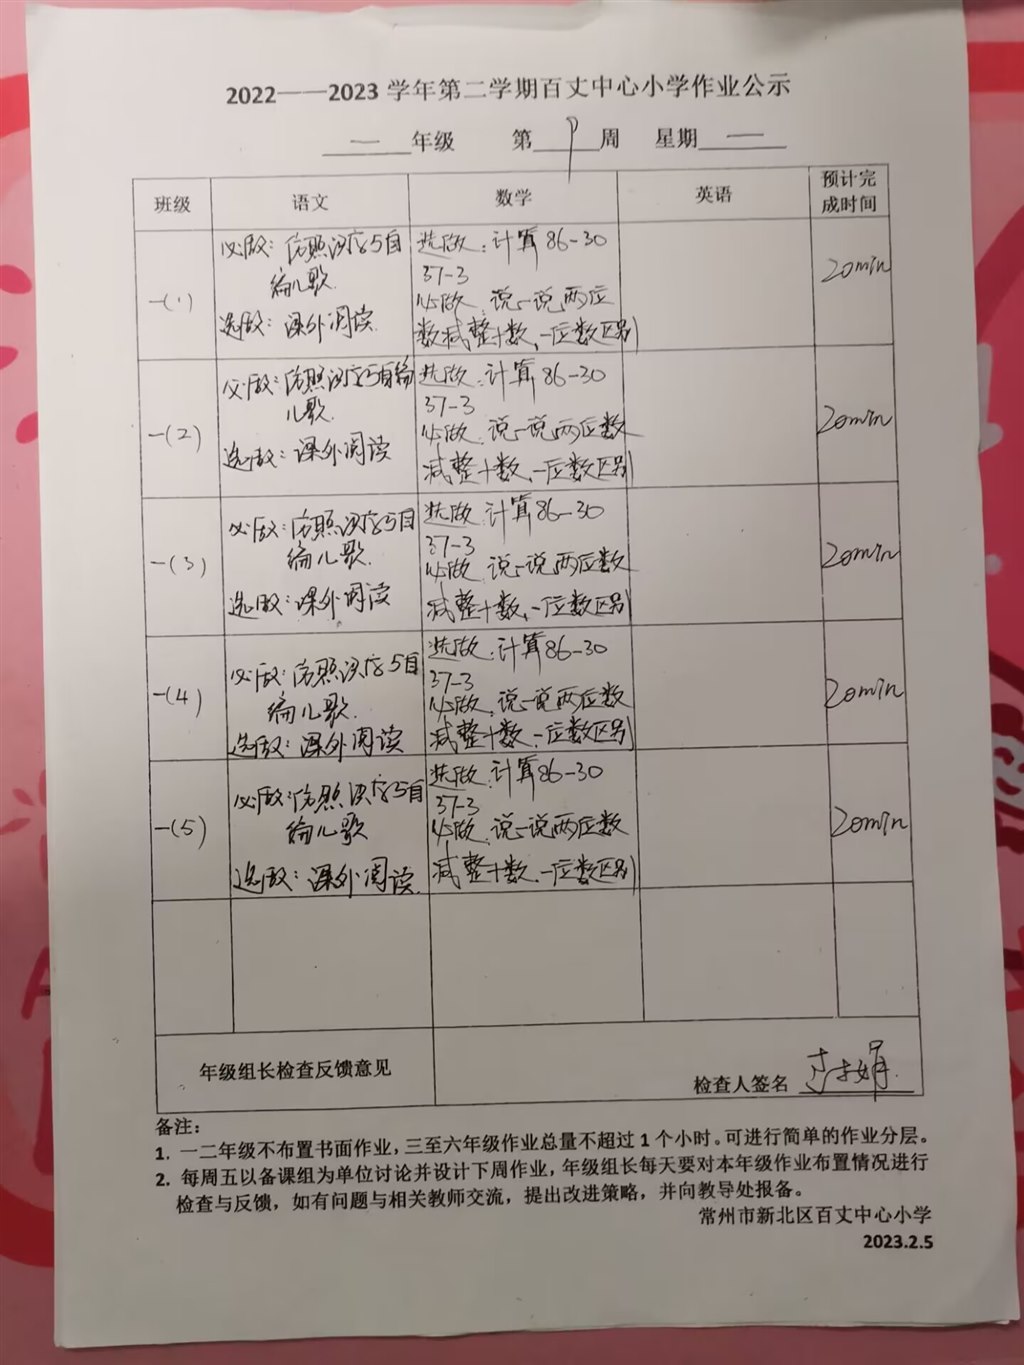 2022——2023 学年第二学期百丈中心小学作业公示
一 年级 第 9 周 星期 一
班级 语文 数学 英语 预计完成时间
一(1)
必做：仿照识字5自
编儿歌.
选做：课外阅读.
选做：计算86-30
37-3
必做.说一说两位
数减整十数、一位数区别
20min
一(2)
必做：仿照识字5自编
儿歌.
选做：课外阅读
选做：计算86-30
37-3
必做.说一说两位数
减整十数、一位数区别
20min
一(3)
必做：仿照识字5自
编儿歌.
选做：课外阅读
选做.计算86-30
37-3
必做.说一说两位数
减整十数、一位数区别
20min
一(4)
必做：仿照识字5自
编儿歌.
选做：课外阅读
选做.计算86-30
37-3
必做.说一说两位数
减整十数、一位数区别
20min
一(5)
必做：仿照识字5自
编儿歌
选做：课外阅读.
选做.计算86-30
37-3
必做.说一说两位数
减整十数、一位数区别
20min
年级组长检查反馈意见
检查人签名
备注：
1. 一二年级不布置书面作业，三至六年级作业总量不超过 1 个小时。可进行简单的作业分层。
2. 每周五以备课组为单位讨论并设计下周作业，年级组长每天要对本年级作业布置情况进行
检查与反馈，如有问题与相关教师交流，提出改进策略，并向教导处报备。
常州市新北区百丈中心小学
2023.2.5